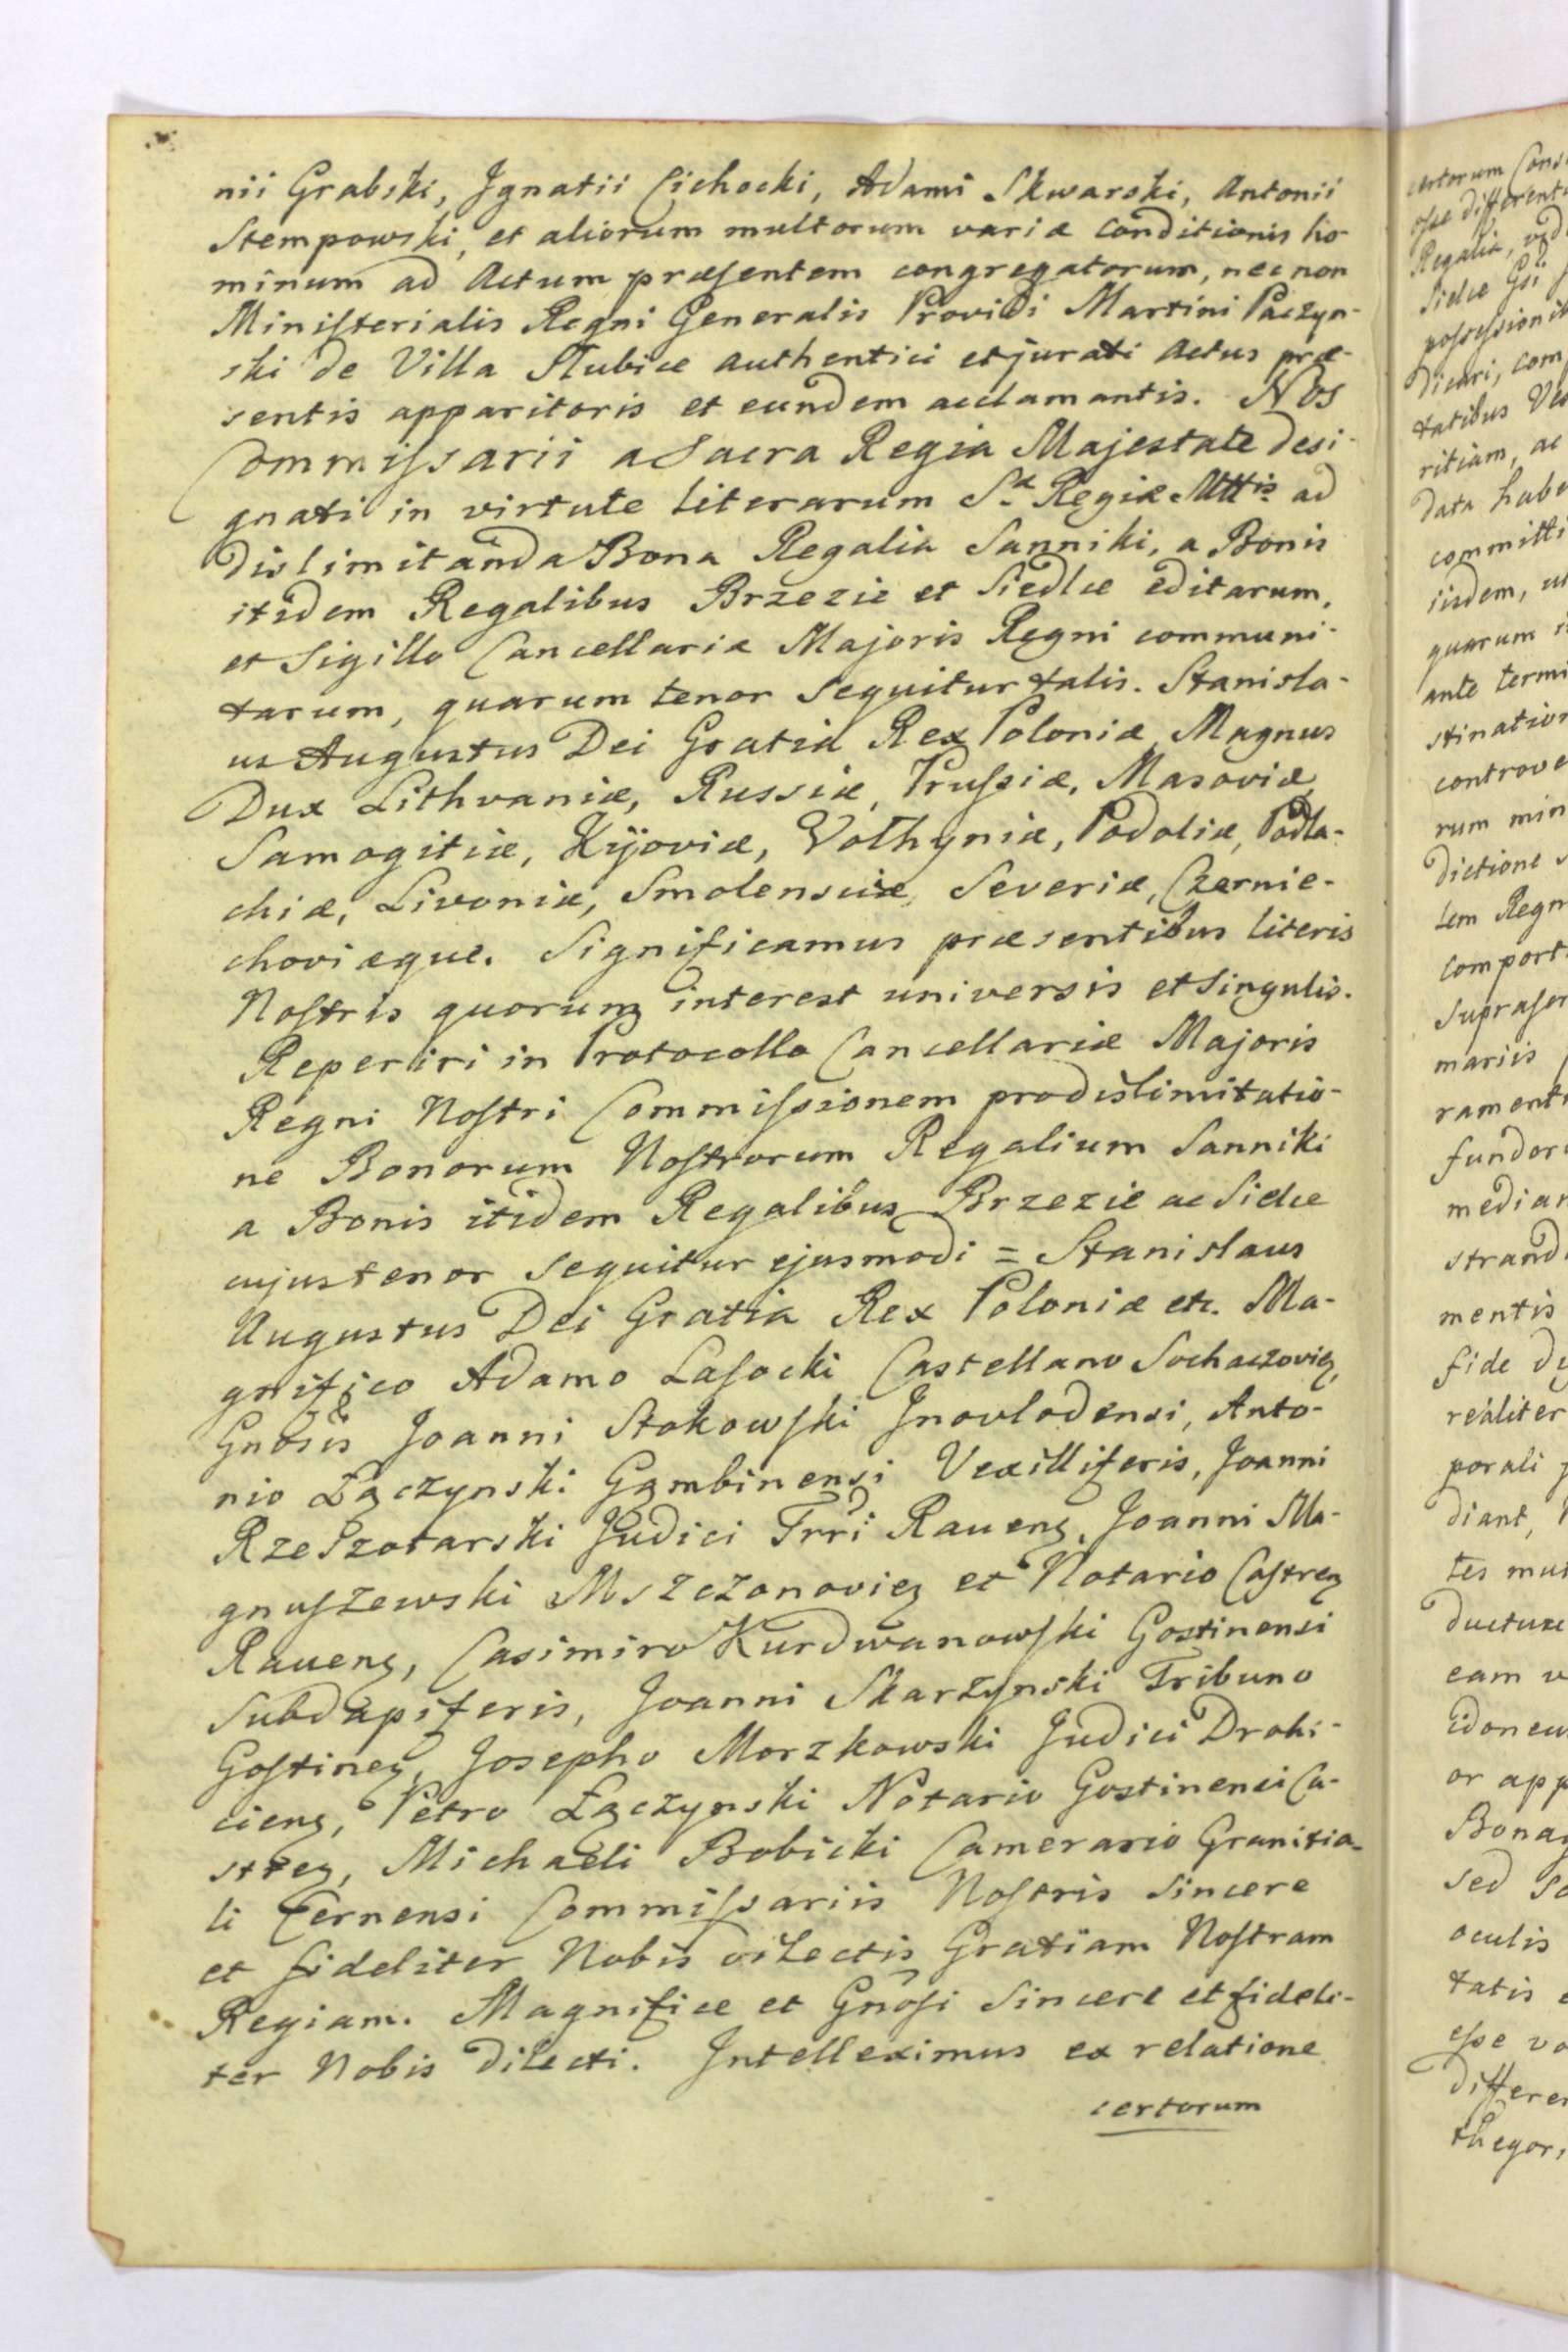 nii Grabski, Jgnatii Cichocki, Adami Skwarski, Antonii
Stempowski, et aliorum multorum variæ conditionis ho-
minum ad Actum præsentem congregatorum, nec non
Ministerialis Regni Generalis Providi Martini Paczyn-
ski de Villa Słubice authentici et jurati Actus præ-
sentis apparitoris et eundem acclamantis. Nos
Commissarii a Sacra Regia Majestate desi-
gnati in virtute literarum S. Regiæ Mttis ad
dislimitanda Bona Regalia Sanniki, a Bonis
itidem Regalibus Brzezie et Siedlce editarum,
et Sigillo Cancellariæ Majoris Regni communi-
tarum, quarum tenor sequitur talis. Stanisla-
us Augustus Dei Gratia Rex Poloniæ, Magnus
Dux Lithvaniæ, Russiæ, Prussiæ, Masoviæ,
Samogitiæ, Kijoviæ, Volhyniæ, Podoliæ, Podla-
chiæ, Livoniæ, Smolensciæ, Severiæ, Czernie-
choviæque. Significamus præsentibus literis
Nostris quorum interest universis et singulis.
Reperiri in Protocollo Cancellariæ Majoris
Regni Nostri Commissionem pro dislimitatio-
ne Bonorum Nostrorum Regalium Sanniki
a Bonis itidem Regalibus Brzezie ac Sielce
cujus tenor sequitur ejusmodi = Stanislaus
Augustus Dei Gratia Rex Poloniæ etc. Ma-
gnifico Adamo Lasocki Castellano Sochaczovieȝ,
Gnosis Joanni Stokowski Jnovlodensi, Anto-
nio Łączynski Gąmbinensi Vexilliferis, Joanni
Rzeszotarski Judici Trri Raueng, Joanni Ma-
gnuszewski Mszczonovieȝ et Notario Castreȝ
Raueng, Casimiro Kurdwanowski Gostinensi
Subdapiferis, Joanni Skarżynski Tribuno
Gostineȝ, Josepho Morzkowski Judici Drohi-
cieng, Petro Łączynski Notario Gostinensi Ca-
streȝ, Michaeli Bobicki Camerario Granitia-
li Cernensi Commissariis Nostris sincere
et fideliter Nobis dilectis Gratiam Nostram
Regiam. Magnifice et Gnosi Sincere et fideli-
ter Nobis dilecti. Intelleximus ex relatione
certorum